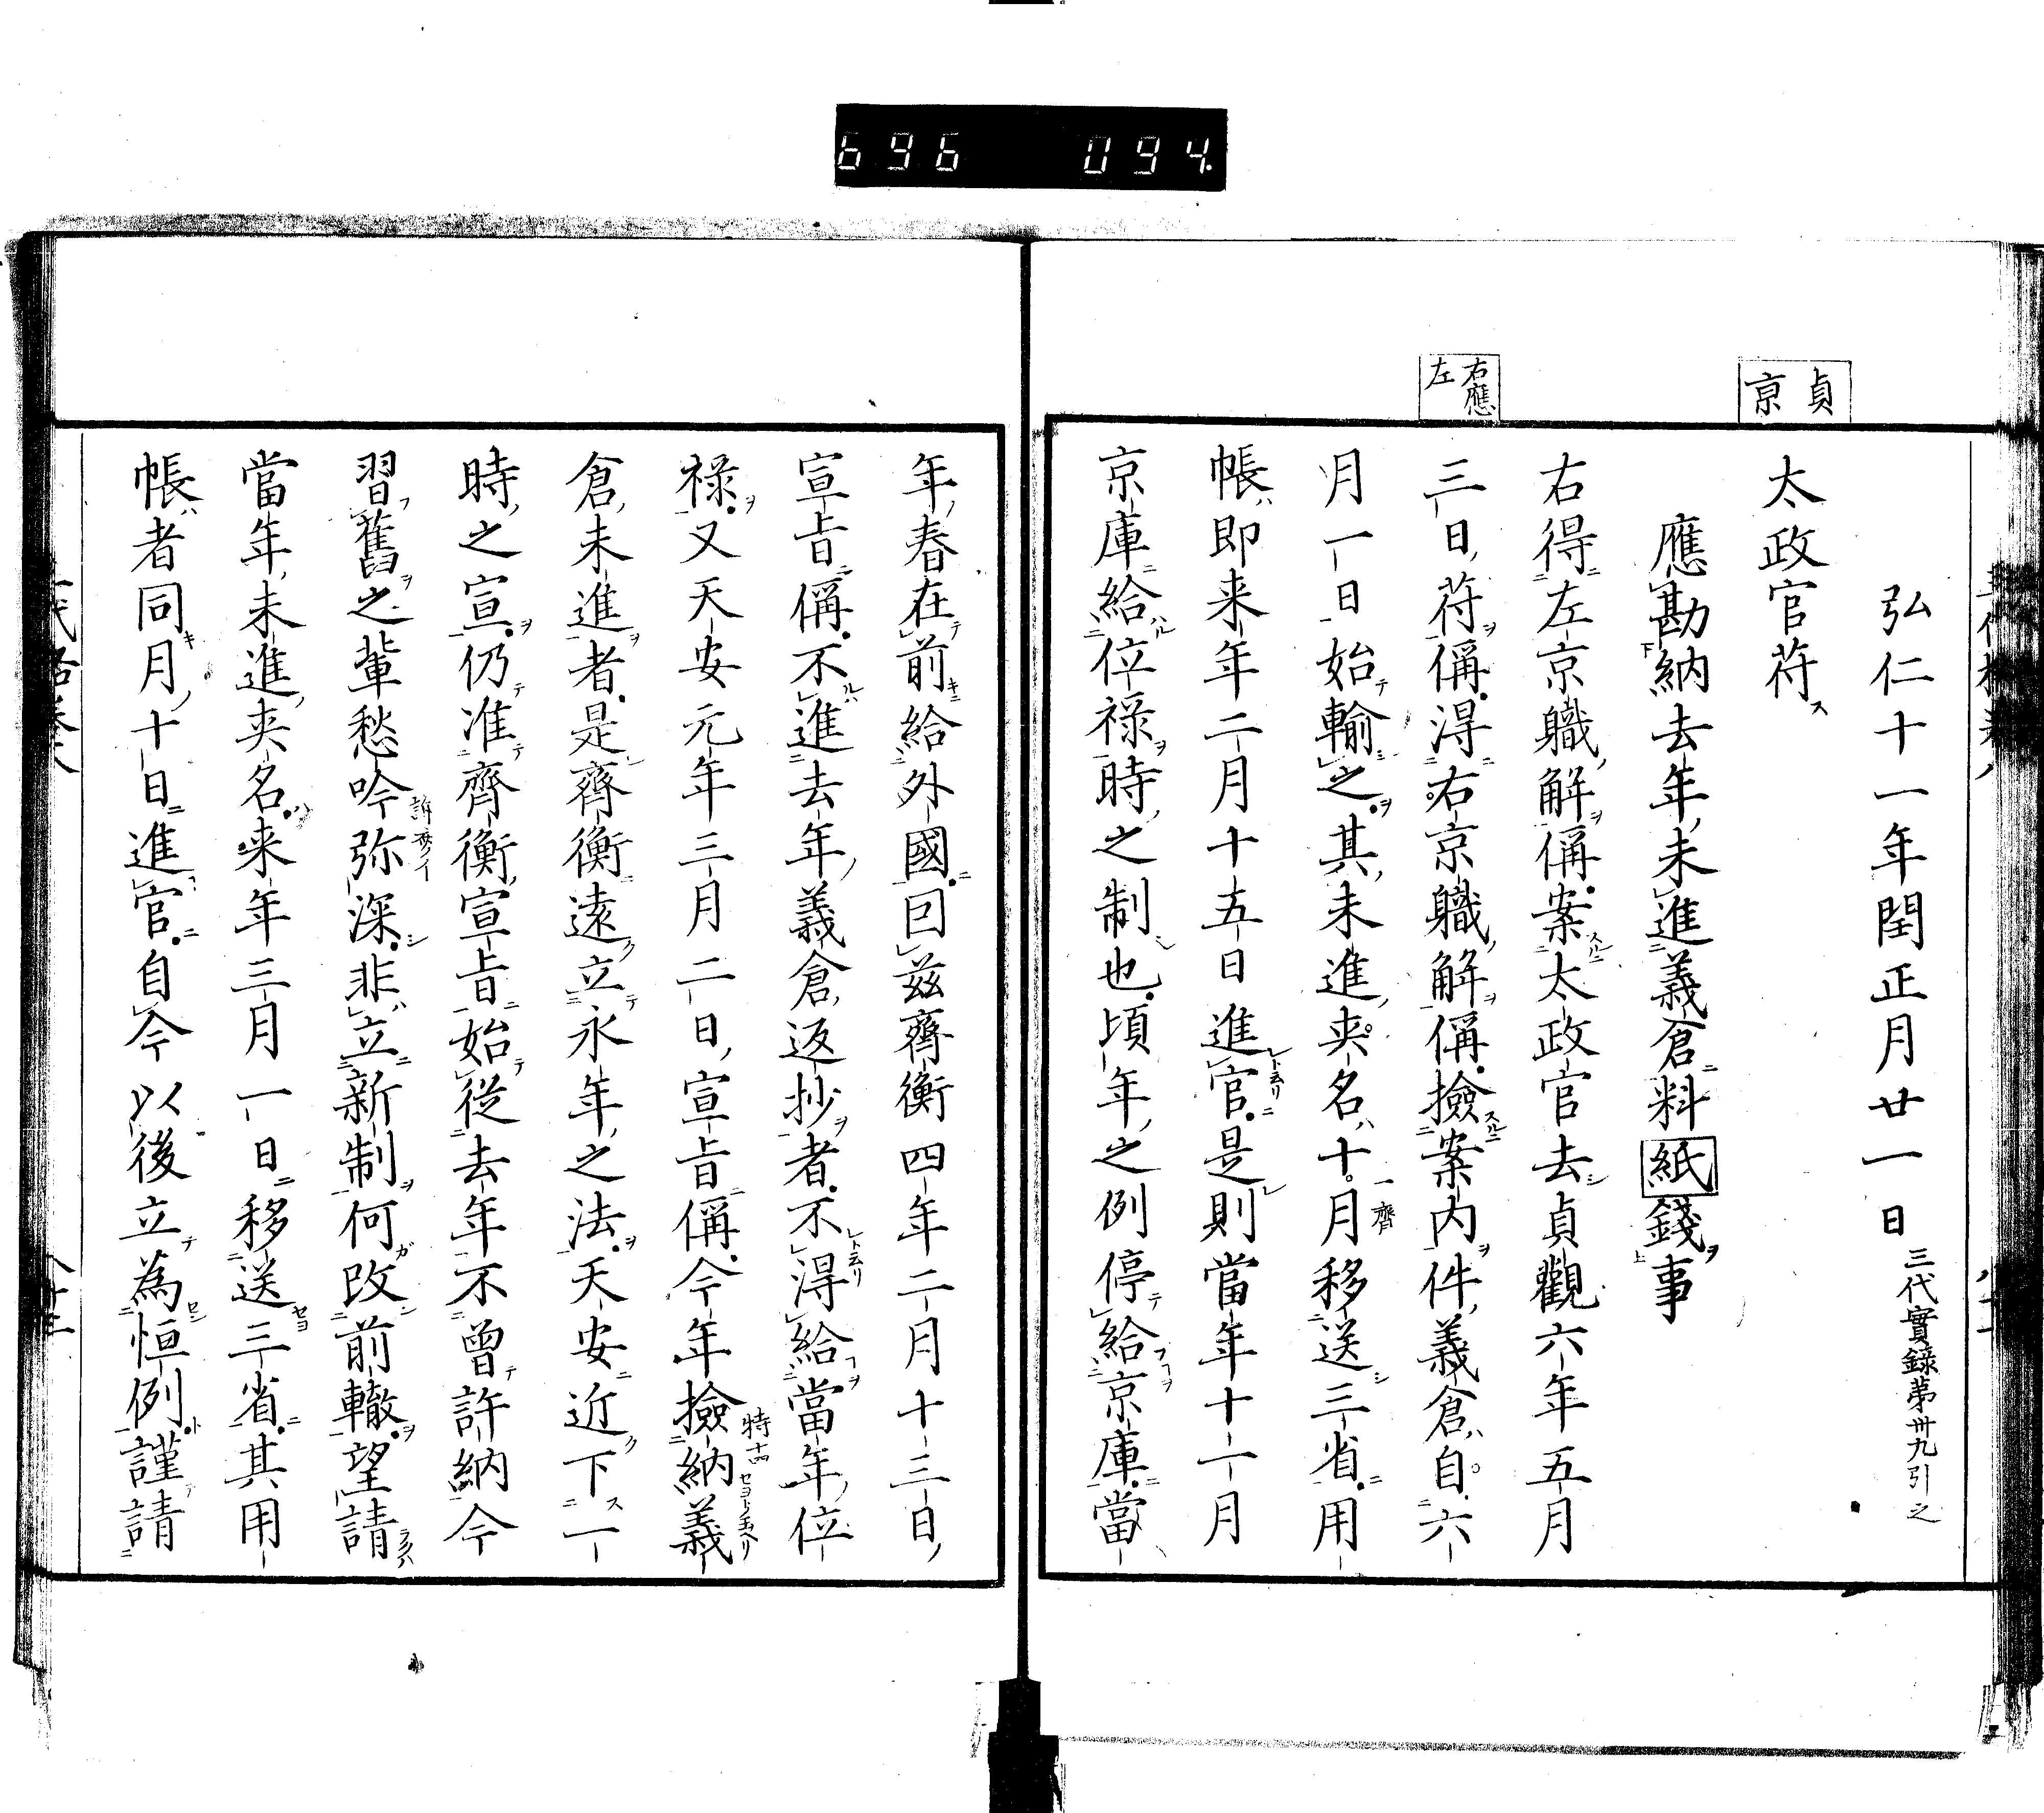 696 094
貞京
右應左
弘仁十一年閏正月廿一日三代實錄第卅九引之
太政官苻
應勘納去年未進義倉料紙錢事
右得左京職解偁案太政官去貞觀六年五月
三日苻偁得右京職解偁撿案内件義倉自六
月一日始輸之其未進夾名十月移送三省用
帳即来年二月十五日進官是則當年十一月
京庫給位禄時之制也頃年之例停給京庫當
年春在前給外國因茲齊衡四年二月十三日
宣旨偁不進去年義倉返抄者不得給當年位
禄又天安元年三月二日宣旨偁今年撿納義
倉未進者是齊衡遠立永年之法天安近下一
時之宣仍准齊衡宣旨始從去年不曾許納今
習舊之輩愁吟弥深非立新制何改前轍望請
當年未進夾名来年三月一日移送三省其用
帳者同月十日進官自今以後立為恒例謹請